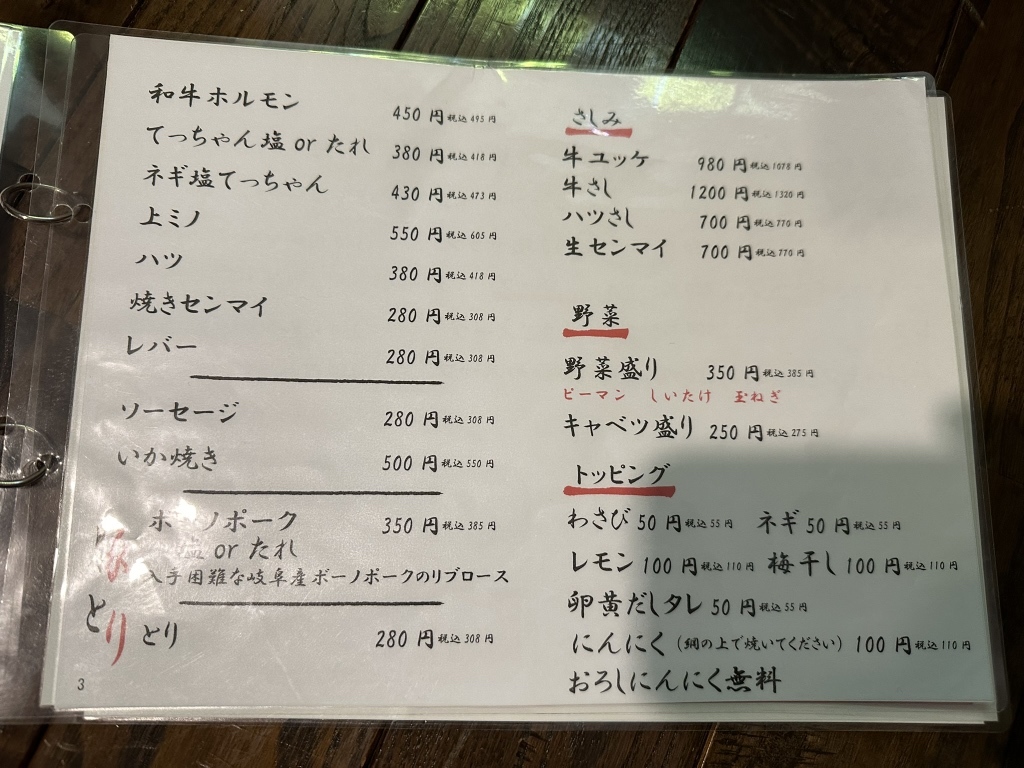 和牛ホルモン 450円税込495円
てっちゃん塩 or たれ 380円税込418円
ネギ塩てっちゃん 430円税込473円
上ミノ 550円税込605円
ハツ 380円税込418円
焼きセンマイ 280円税込308円
レバー 280円税込308円
ソーセージ 280円税込308円
いか焼き 500円税込550円
ボーノポーク 350円税込385円
塩 or たれ
入手困難な岐阜産ボーノポークのリブロース
とり 280円税込308円
とり
3
さしみ
牛ユッケ 980円税込1078円
牛さし 1200円税込1320円
ハツさし 700円税込770円
生センマイ 700円税込770円
野菜
野菜盛り 350円税込385円
ピーマン しいたけ 玉ねぎ
キャベツ盛り 250円税込275円
トッピング
わさび50円税込55円 ネギ50円税込55円
レモン100円税込110円 梅干し100円税込110円
卵黄だしタレ50円税込55円
にんにく（網の上で焼いてください）100円税込110円
おろしにんにく無料